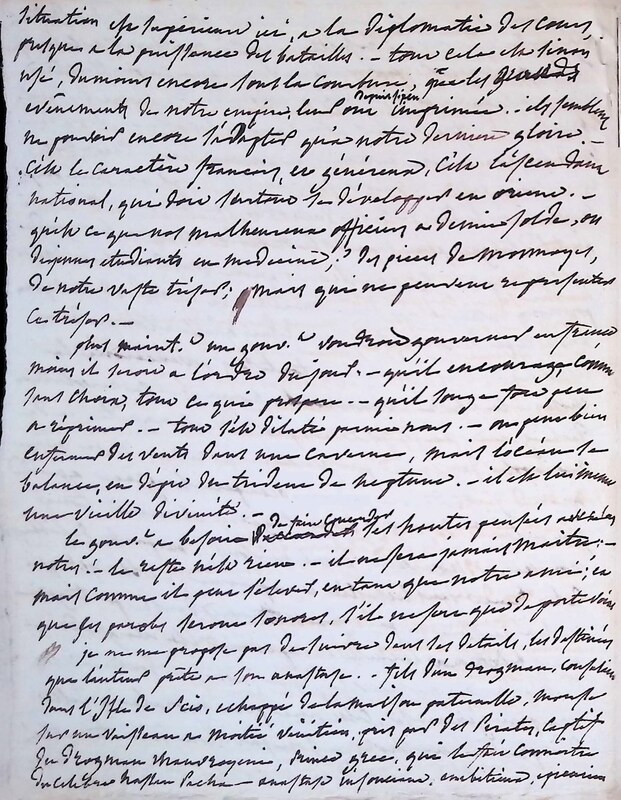 situation est supérieure ici, a la diplomatie des cours,
presque a la puissance des batailles. – tout cela est sinon
usé, dumoins encore sous la courbure, que les grands
evênements de notre empire, leur ont depuis peu imprimée. – ils semblent
ne pouvoir encore s'adapter qu'a notre derniere gloire –
C'est le caractère francois, et généreux, C'est l'ascendant
national, qui doit surtout se développer en orient. –
qu'est ce que nos malheureux officiers a demie solde, ou
de jeunes etudiants en medecine,? des pieces de monnoyes,
de notre vaste trésor; mais qui ne peuvent representer
ce tresor. –
plus maint.t un gouv.t voudroit gouverner en france
moins il seroit a l'ordre du jour. – qu'il encourage comme
sans choix, tout ce qui prospere. – qu'il songe fort peu
a réprimer. – tout s'est dilaté parmi nous. – on peut bien
enfermer des vents dans une caverne, mais l'océan se
balance, en dépit du trident de neptune. – il est lui meme
une vieille divinité. –
le gouv.t a besoin de faire concorder ses hautes pensées
notres. – le reste n'est rien. – il ne sera jamais maitre: –
mais comme il peut s'elever, en tant que notre ami; et
que ses paroles seront sonores, s'il ne sert que de porte voix
je ne me propose pas de suivre dans les details, les destinées
que l'auteur prête a son anastase. – fils d'un drogman,
dans l'Isle de Scio, echappé de la maison paternelle, mousse
sur un vaisseau a moitié vénitien, pris par des Pirates, captif
du drogman mauroyenie, Prince grec, qui le fait connoitre
du célebre hassan Pacha – anastase insouciant, ambitieux,